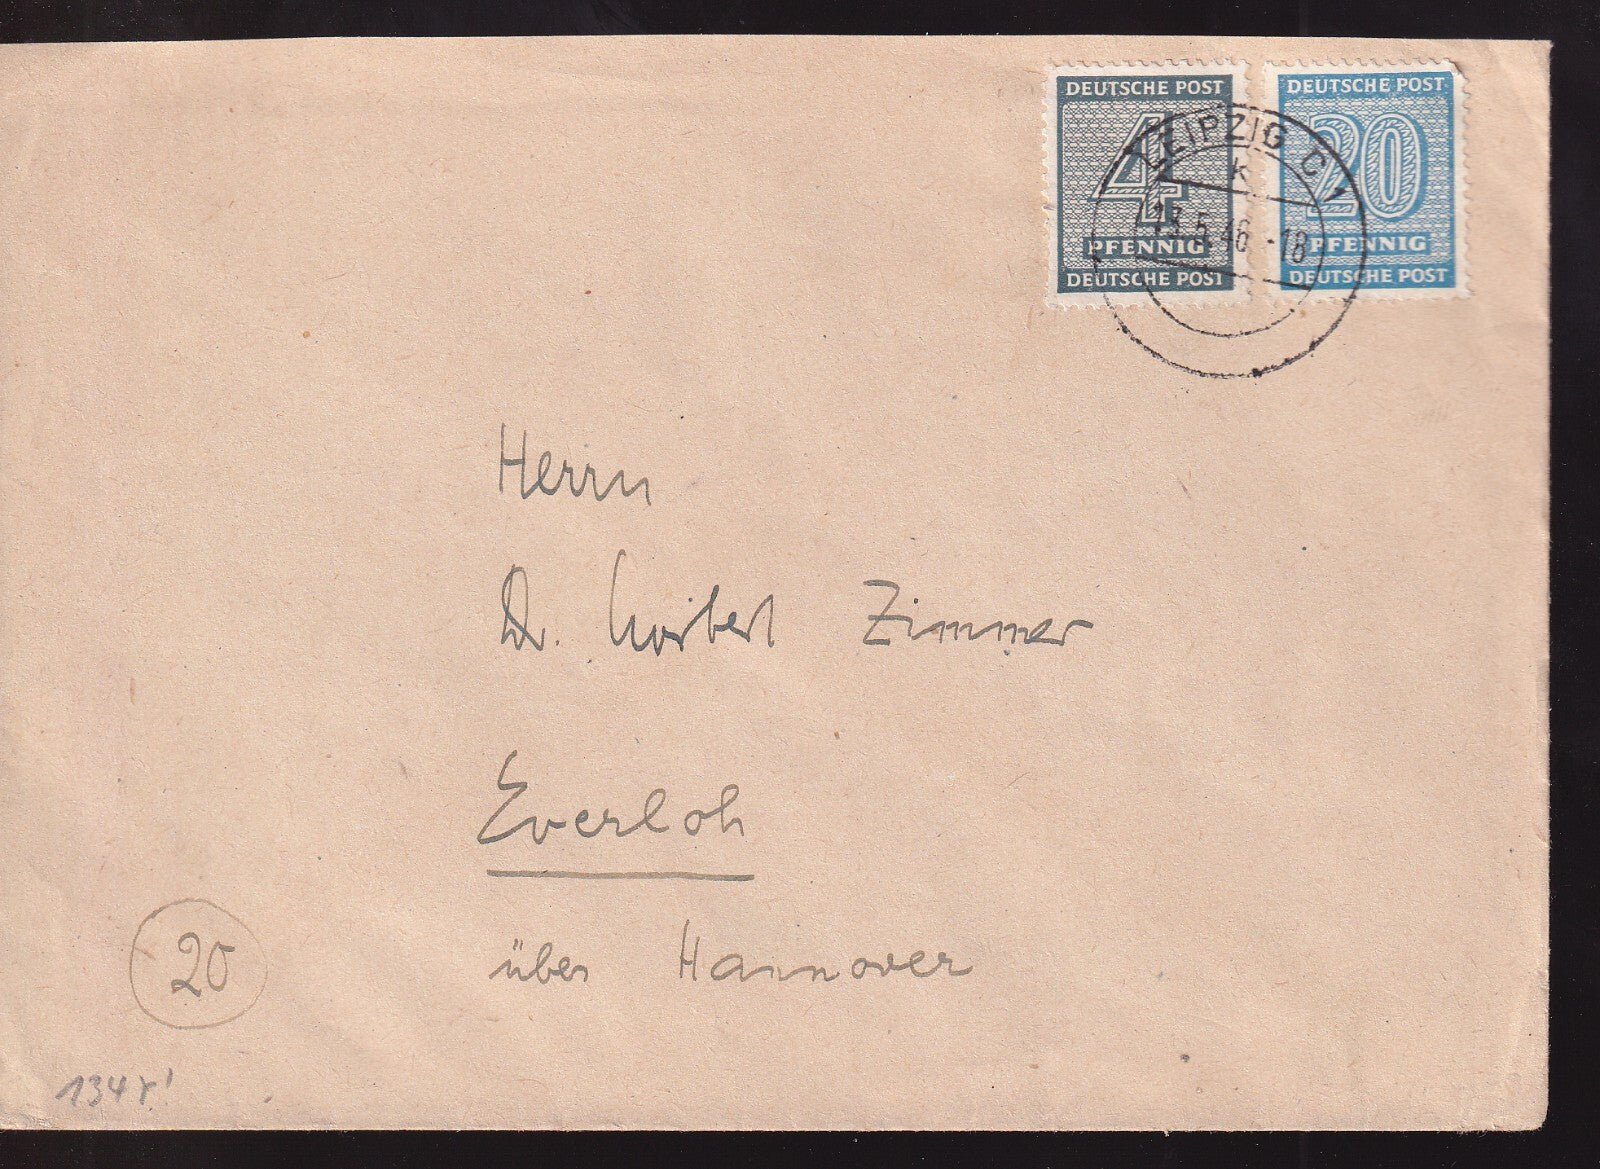 DEUTSCHE POST
4
PFENNIG
DEUTSCHE POST
DEUTSCHE POST
20
PFENNIG
DEUTSCHE POST
LEIPZIG C 1
k
13.5.46.-18
Herrn
Dr. Norbert Zimmer
Everloh
über Hannover
20
134